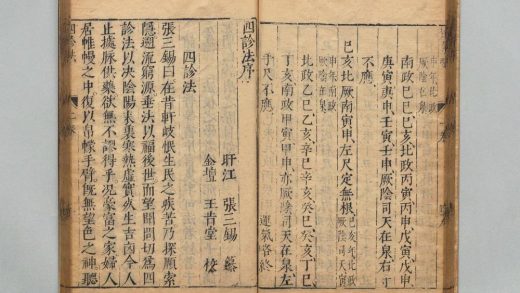 南政己巳己亥北政丙寅丙申戊寅戊申
庚寅庚申壬寅壬申厥陰司天在泉右寸
不應
巳亥北厥南寅申左尺定無根
申年南政
厥陰在泉
北政乙巳乙亥辛巳辛亥癸巳癸亥丁巳
丁亥南政甲寅甲申亦厥陰司天在泉左
手尺不應 運氣畧終
四診法序
盱江 張三錫 纂
金壇 王肯堂 校
四診法
張三錫曰在昔軒岐恨生民之疾苦乃探頤索
隱溯流窮源垂法以福後世而望聞問切為四
診法以決陰陽表裏寒熱虛實死生吉凶今人
止據脉供藥欲無不認得乎況豪富之家婦人
居帷幔之中復以帛幪手臂旣無望色之神聽
四診法